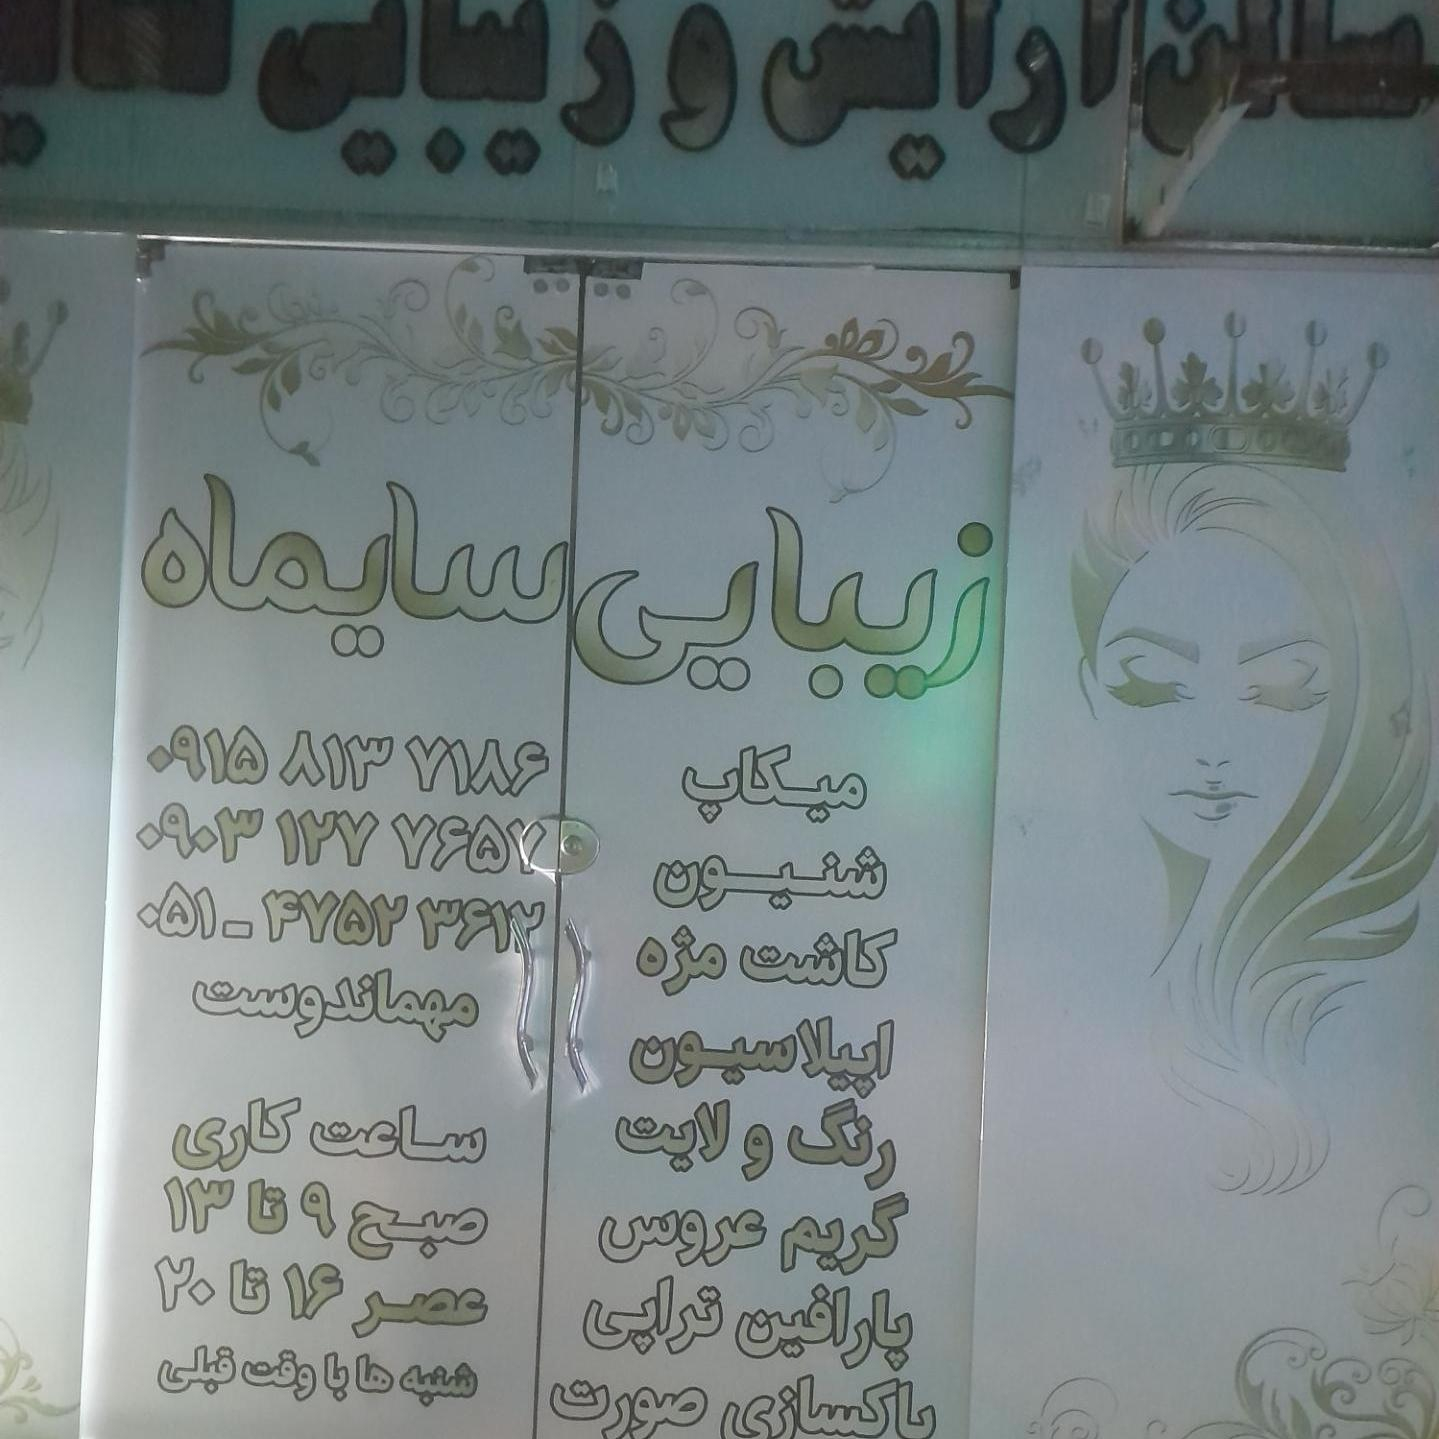 سالن آرایش و زیبایی
زیبایی سایماه
میکاپ
شنیون
کاشت مژه
اپیلاسیون
رنگ و لایت
گریم عروس
پارافین تراپی
پاکسازی صورت
۰۹۱۵ ۸۱۳ ۷۱۸۶
۰۹۰۳ ۱۲۷ ۷۶۵۷
۰۵۱ - ۴۷۵۲ ۳۶۱۲
مهماندوست
ساعت کاری
صبح ۹ تا ۱۳
عصر ۱۶ تا ۲۰
شنبه ها با وقت قبلی